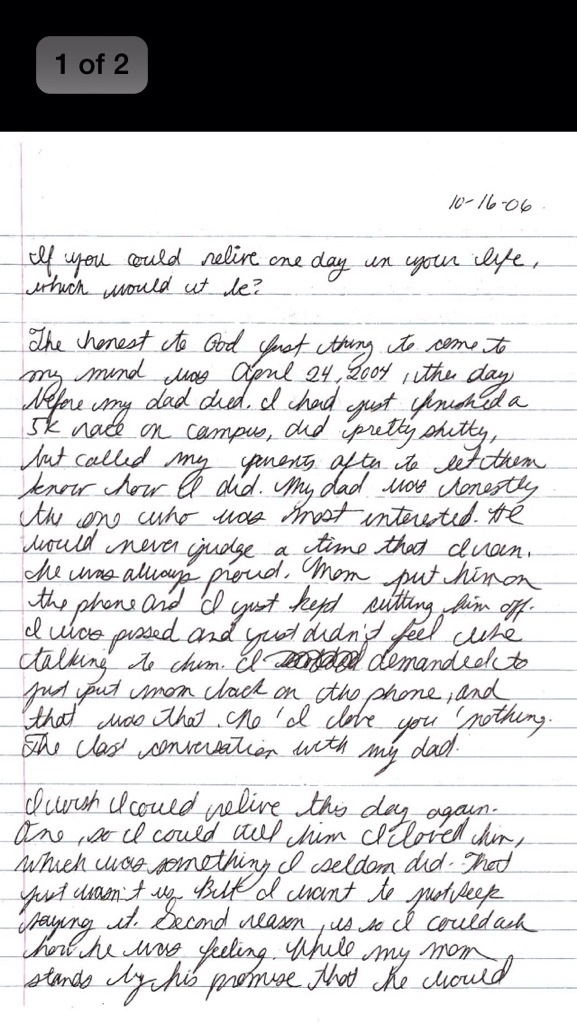 1 of 2
10-16-06
If you could relive one day in your life,
which would it be?
The honest to God first thing to come to
my mind was April 24, 2004, the day
before my dad died. I had just finished a
5K race on campus, did pretty shitty,
but called my parents after to let them
know how I did. My dad was honestly
the one who was most interested. He
would never judge a time that I ran.
he was always proud. Mom put him on
the phone and I just kept cutting him off.
I was pissed and just didn't feel like
talking to him. I demanded to
just put mom back on the phone, and
that was that. No 'I love you' nothing.
The last conversation with my dad.
I wish I could relive this day again.
One, so I could tell him I loved him,
which was something I seldom did. That
just wasn't us. But I want to just keep
saying it. Second reason, is so I could ask
how he was feeling. While my mom
stands by his promise that he would